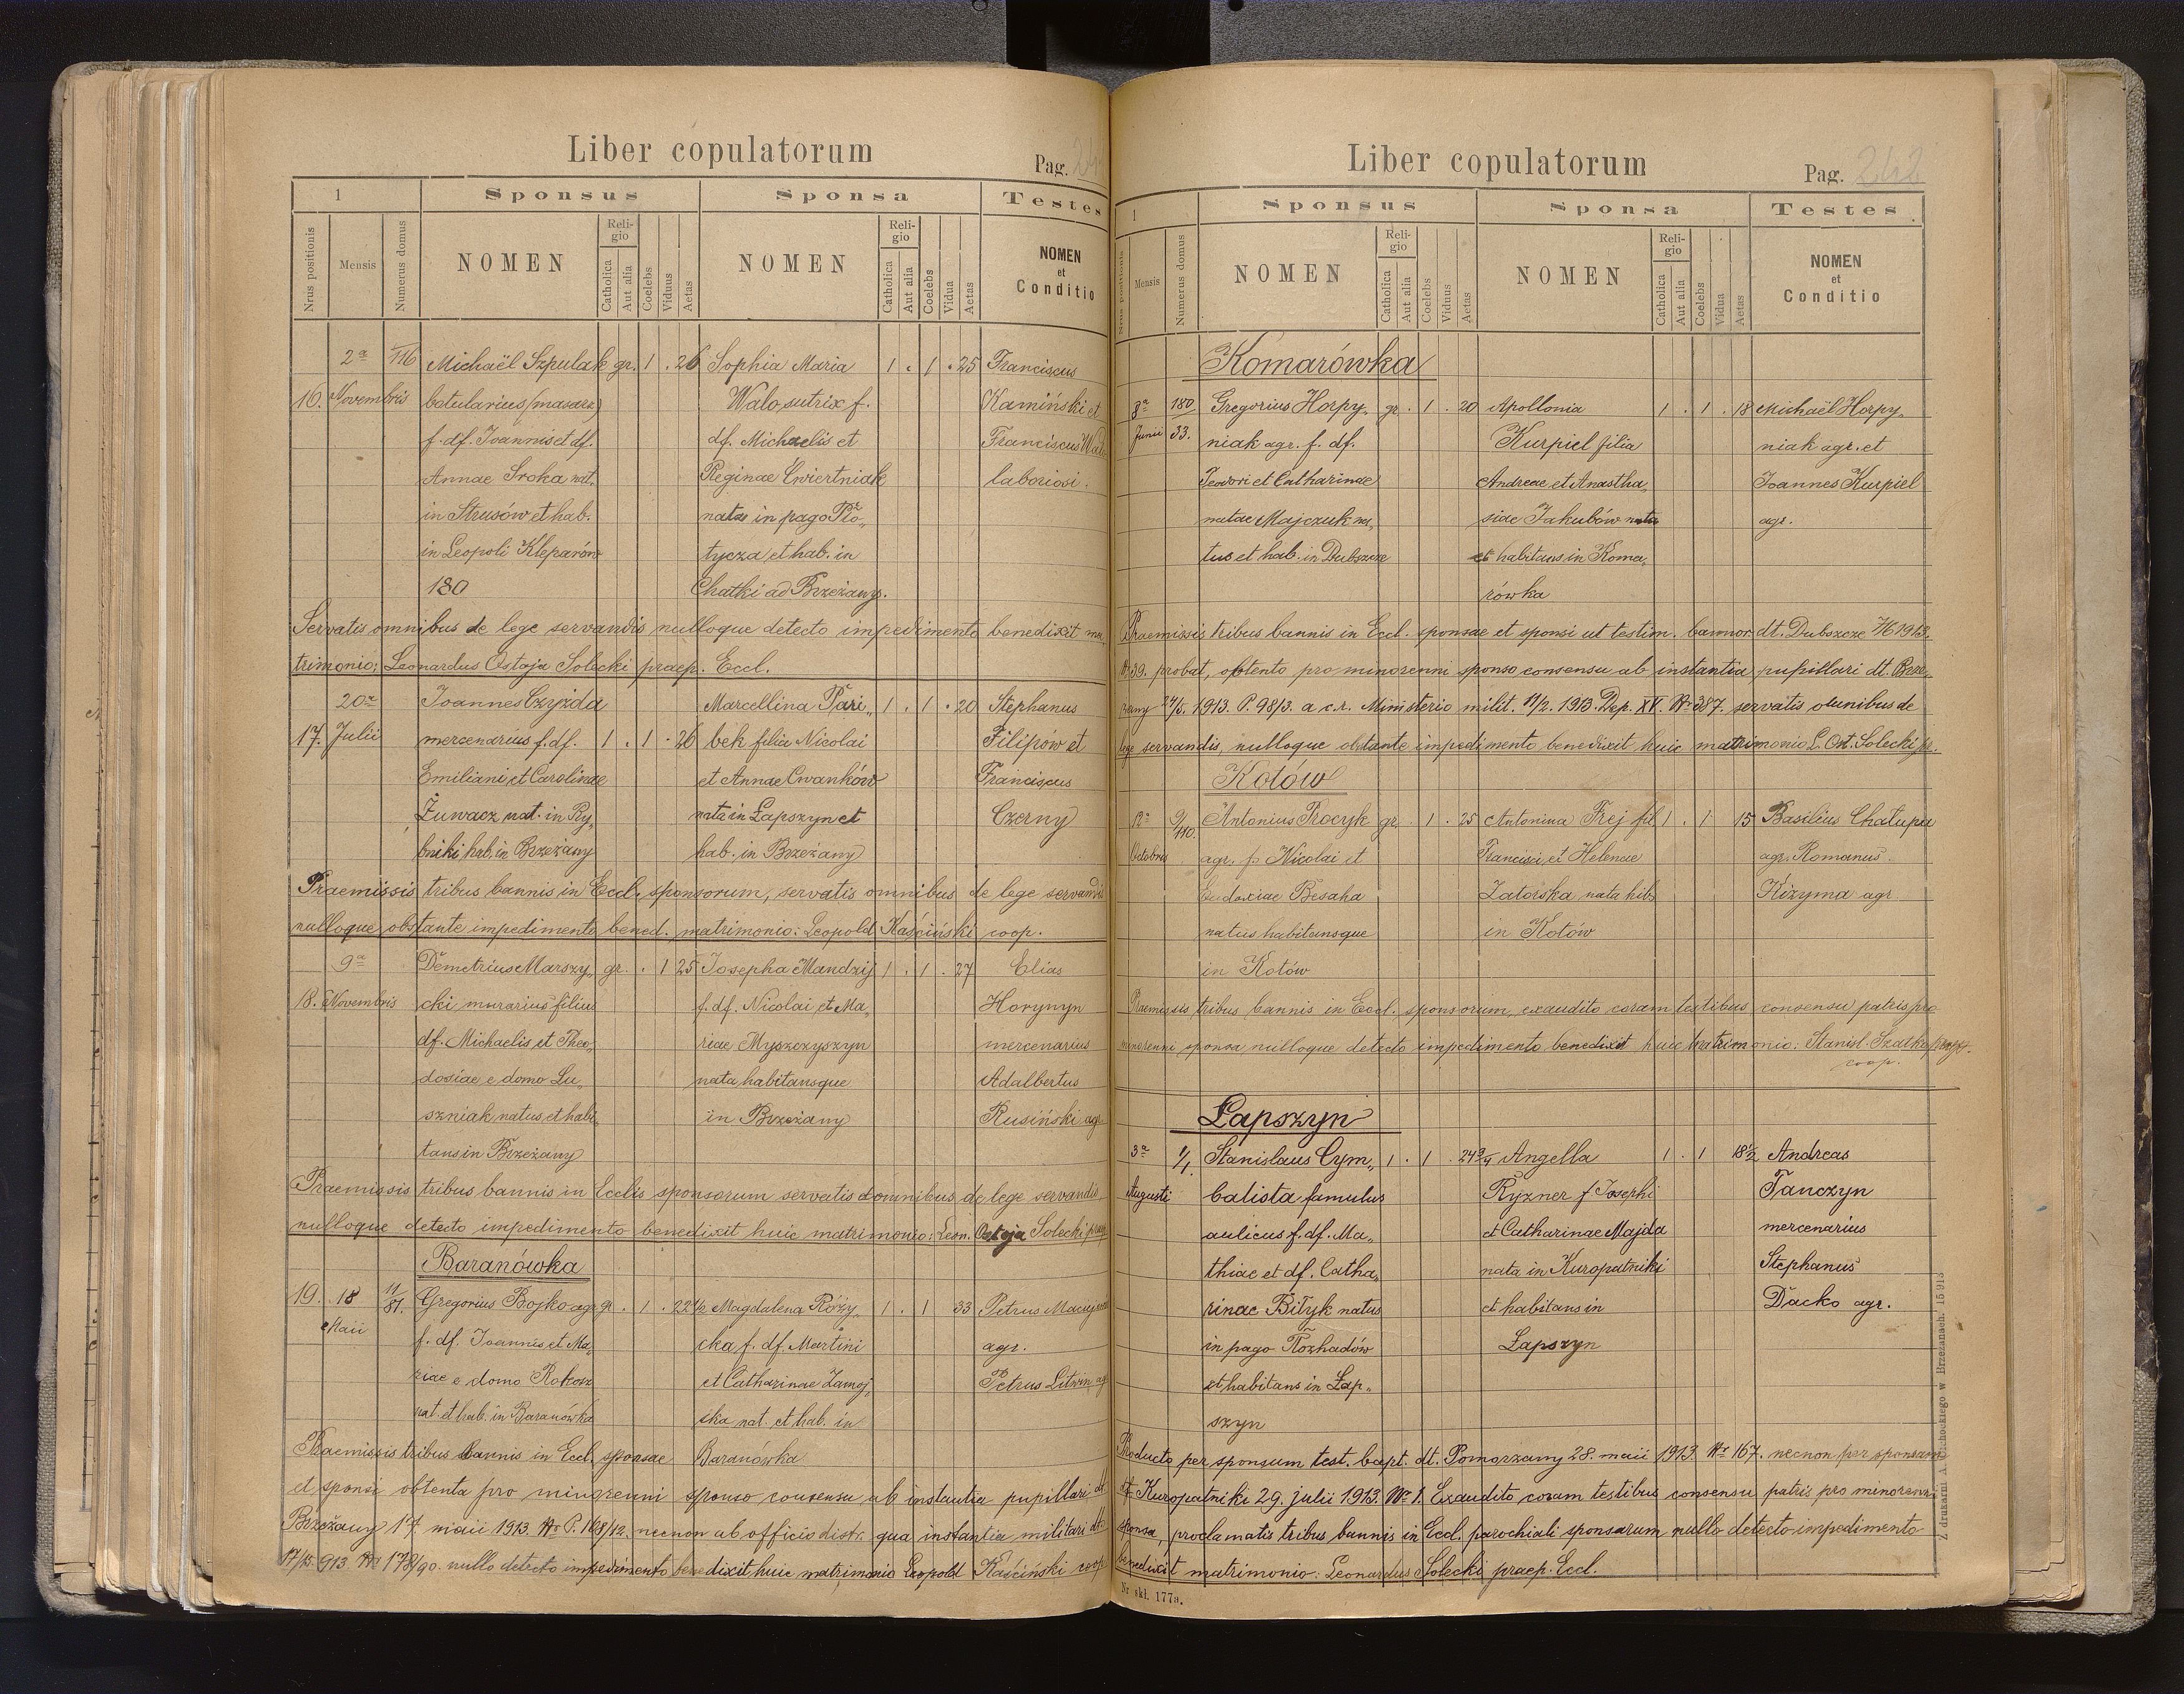 Liber copulatorum
Pag.
1
Sponsus
Sponsa
Testes
Nrus positionis
Mensis
Numerus domus
NOMEN
Religio
Catholica
Aut alia
Coelebs
Viduus
Aetas
NOMEN
Religio
Catholica
Aut alia
Coelebs
Vidua
Aetas
NOMEN
et
Conditio
2a 116 Michaël Szpulak gr. 1 . 26 Sophia Maria 1 . 1 . 25 Franciscus
16. Novembris botularius/masarz/ Walo sutrix f. Kamiński et
f. df. Joannis et df. df. Michaelis et Franciscus Walo
Annae Sroka nat. Reginae Ćwiertniak laboriosi.
in Strusów et hab. nata in pago
in Leopoli Kleparów tycza et hab. in
180 Chatki ad Brzeżany.
Servatis omnibus de lege servandis nulloque detecto impedimento benedixit ma
trimonio: Leonardus Ostoja Solecki praep. Eccl.
20a Joannes Czyżda Marcellina Pari„ 1 . 1 . 20 Stephanus
17. Julii mercenarius f. df. 1 . 1 . 26 bek filia Nicolai Filipów et
Emiliani et Carolinae et Annae Cwanków Franciscus
Żuwacz nat. in Ry„ nata in Łapszyn et Czerny
bniki hab. in Brzeżany hab. in Brzeżany
Praemissis tribus bannis in Eccl. sponsorum, servatis omnibus de lege servandis
nulloque obstante impedimento bened. matrimonio: Leopold Kaściński coop.
9a Demetrius Marszy„ gr. . 1 25 Josepha Mandzij 1 . 1 . 27 Elias
18. Novembris cki murarius filius f. df. Nicolai et Ma„ Horynyn
df. Michaelis et Theo„ riae Myszczyszyn mercenarius
dosiae e domo Lu„ nata habitansque Adalbertus
szniak natus et habi„ in Brzeżany Rusiński agr.
tans in Brzeżany
Praemissis tribus bannis in Ecclis sponsorum servatis omnibus de lege servandis
nulloque detecto impedimento benedixit huic matrimonio: Leon. Ostoja Solecki praep
Baranówka
19. 18 11/81. Gregorius Bojko agr. gr . 1 . 22 1/2 Magdalena Róży„ 1 . 1 33 Petrus
Maii f. df. Joannis et Ma„ cka f. df. Martini agr.
riae e domo Rokosz et Catharinae Zamoj„ Petrus Litwin ag
nat. et hab. in Baranówka ska nat. et hab. in
Praemissis tribus bannis in Eccl. sponsae Baranówka
et sponsi obtenta pro minorenni sponso consensu ab instantia pupillari dt
Brzeżany 17 maii 1913. Nr P. 168/12. necnon ab officio distr. qua instantia militari dt
17/5 913 Nr 178/90. nullo detecto impedimento benedixit huic matrimonio Leopold Kaściński coop
Liber copulatorum
Pag. 242
1
Sponsus
Sponsa
Testes
Nrus positionis
Mensis
Numerus domus
NOMEN
Religio
Catholica
Aut alia
Coelebs
Viduus
Aetas
NOMEN
Religio
Catholica
Aut alia
Coelebs
Vidua
Aetas
NOMEN
et
Conditio
Komarówka
8a 180 Gregorius Horpy„ gr . 1 . 20 Apollonia 1 . 1 . 18 Michaël Horpy„
Junii 33. niak agr. f. df. Kurpiel filia niak agr. et
Teodori et Catharinae Andreae et Anastha„ Joannes Kurpiel
natae Majczuk na„ siae Jakubów nata agr.
tus et hab. in Dubszcze et habitans in Koma„
rówka
Praemissis tribus bannis in Eccl. sponsae et sponsi ut testim. bannor. dt. Dubszcze 7/6 1913.
N. 39. probat, obtento pro minorenni sponso consensu ab instantia pupillari dt. Brze„
żany 24/5. 1913. P. 98/3. a c. r. Ministerio milit. 11/2. 1913. Dep. XV. Nr 387. servatis omnibus de
lege servandis, nulloque obstante impedimento benedixit huic matrimonio L. Ost. Solecki pr.
Kotów
12a 9/110. Antonius Procyk gr . 1 . 25 Antonina Frej fil 1 . 1 15 Basilius
Octobris agr. f. Nicolai et Francisci et Helenae agr. Romanus
Eudoxiae Besaha Zatorska nata hib. Kizyma agr
natus habitansque in Kotów
in Kotów
Praemissis tribus bannis in Eccl. sponsorum, exaudito coram testibus consensu patris pro
minorenni sponsa nulloque detecto impedimento benedixit huic matrimonio: Stanisl.
coop.
Łapszyn
3a 1/1. Stanislaus Cym„ 1 . 1 . 24 3/4 Angella 1 . 1 18 1/2 Andreas
Augusti balista famulus Ryzner f Josephi Tanczyn
aulicus f. df. Ma„ et Catharinae Majda mercenarius
thiae et df. Catha„ nata in Kuropatniki Stephanus
rinae Biłyk natus et habitans in Dacko agr.
in pago Rozhadów Łapszyn
et habitans in Łap„
szyn
Producto per sponsum test. bapt. dt. Pomorzany 28. maii 1913 Nr 167. necnon per sponsam
dt. Kuropatniki 29. julii 1913. Nr 1. Exaudito coram testibus consensu patris pro minorenni
sponsa, proclamatis tribus bannis in Eccl. parochiali sponsarum nullo detecto impedimento
benedixit matrimonio: Leonardus Solecki praep. Eccl.
Nr skł. 177a.